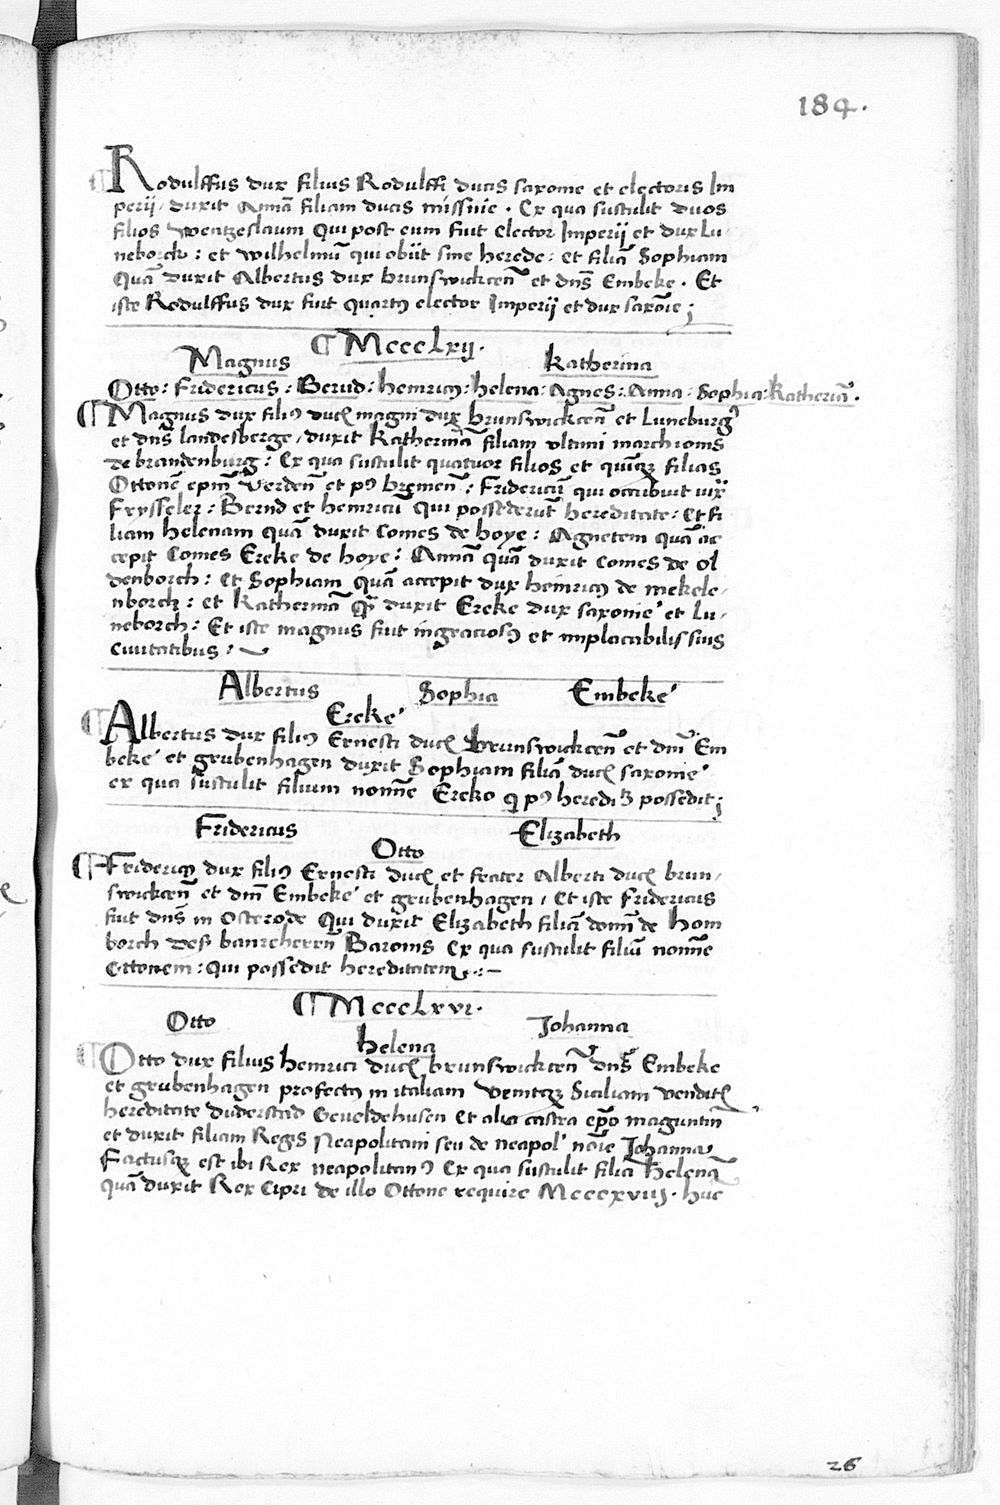 184.
Rodulffus dux filius Rodulffi ducis saxonie et electoris Im
perij / duxit Annā filiam ducis missnie . Ex qua sustulit duos
filios wentzeslaum Qui post eum fuit elector Imperij et dux Lu
neborch : et wilhelmū qui obiit sine herede : et filiā Sophiam
Quā duxit Albertus dux brunswickcen̄ et dn̄s Embeke . Et
iste Rodulffus dux fuit quartꝯ elector Imperij et dux saxōie ;
¶ Mccclxij .
Magnus Katherina
Otto : Fridericus : Bernd : heinricꝯ : helena : Agnes : Anna : Sophia : Katherinā .
¶ Magnus dux filiꝯ ducꝭ magni dux brunswickcen̄ et Luneburgꝭ
et dn̄s landesberge / duxit Katherinā filiam ultimi marchionis
de brandenburg : Ex qua sustulit quatuor filios et quīqꝫ filias
Ottonē epm̄ Verden̄ et pꝯ bremen̄ : Fridericū qui occubuit iux̄
Frysseler : Bernd et heinricū Qui possederūt hereditatē : Et fi
liam helenam quā duxit Comes de hoye : Agnetem quā ac
cepit Comes Ereke de hoye : Annā quā duxit Comes de ol
denborch : Et Sophiam quā accepit dux heinricꝯ de mekele /
nborch : et Katherinā Quā duxit Ereke dux saxonie et Lu /
neborch : Et iste magnus fuit ingraciosꝯ et implacabilis suis
Ciuitatibus :
Albertus Sophia Embeke
Ereke
¶ Albertus dux filiꝯ Ernesti ducꝭ brunswickcen̄ et dn̄i Em
beke et grubenhagen duxit Sophiam filiā ducꝭ saxonie
ex qua sustulit filium nomīe Ereko q pꝯ heredit possedit ;
Fridericus Elizabeth
Otto
¶ Fridericꝯ dux filiꝯ Ernesti ducꝭ et frater Alberti ducꝭ brun /
swickcen̄ et dn̄i Embeke et grubenhagen / Et iste Fridericus
fuit dn̄s in Osterode Qui duxit Elizabeth filiā domī de hom
borch deß banreherrn Baronis Ex qua sustulit filiū nomīe
Ottonem : qui possedit hereditatem
¶ Mccclxvi .
Otto Johanna
Helena
¶ Otto dux filius heinrici ducꝭ brunswickcen̄ dn̄s Embeke
et grubenhagen profectꝯ in italiam Vemitqꝫ Siciliam venditꝭ
hereditate duderstad Geueldehusen et alia castra ep̄o maguntin̄
et duxit filiam Regis Neapolitani seu de neapol' nōie Johanna
Factusqꝫ est ibi Rex neapolitanꝯ Ex qua sustulit filiā helenā
quā duxit Rex Cipri de illo Ottone require Mcccxviij . huc
26